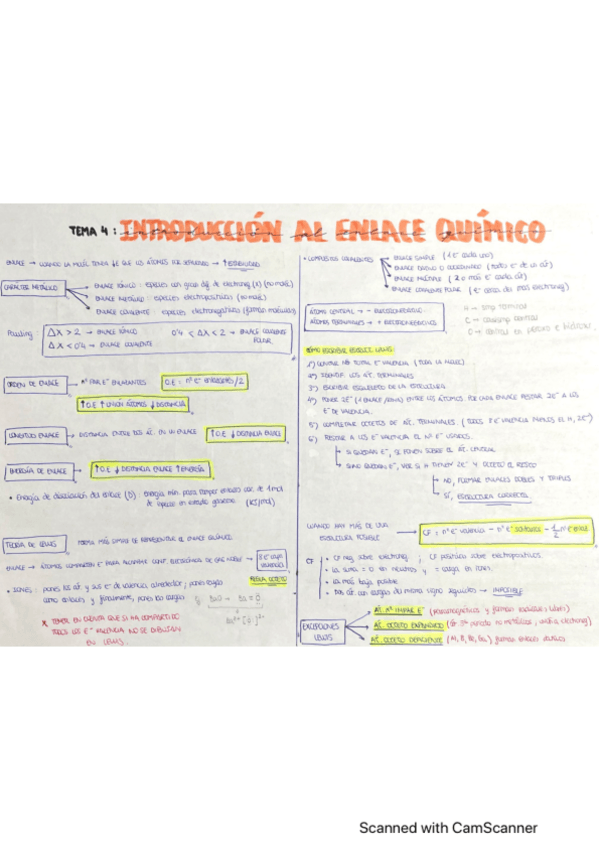 TEMA 4: INTRODUCCIÓN AL ENLACE QUÍMICO
ENLACE → CUANDO LA MOLÉC. TENGA ↓E QUE LOS ÁTOMOS POR SEPARADO → ↑ESTABILIDAD
CARÁCTER METÁLICO
ENLACE IÓNICO: especies con gran dif. de electroneg
ENLACE METÁLICO: especies electropositivas (no moléc.)
ENLACE COVALENTE: especies electronegativas (forman moléculas)
Pauling
ΔX > 2 → ENLACE IÓNICO
0'4 < ΔX < 2 → ENLACE COVALENTE POLAR
ΔX < 0'4 → ENLACE COVALENTE
ORDEN DE ENLACE → Nº PAR E⁻ ENLAZANTES
O.E = nº e⁻ enlazantes/2
↑O.E ↑UNIÓN ÁTOMOS ↓DISTANCIA
LONGITUD ENLACE → DISTANCIA ENTRE DOS ÁT. EN UN ENLACE
↑O.E ↓DISTANCIA ENLACE
ENERGÍA DE ENLACE → ↑O.E ↓DISTANCIA ENLACE ↑ENERGÍA
• Energía de disociación del enlace (D)
Energía mín. para romper enlace cov. de 1 mol
de especie en estado gaseoso (KJ/mol)
TEORÍA DE LEWIS
FORMA MÁS SIMPLE DE REPRESENTAR EL ENLACE QUÍMICO
ENLACE → ÁTOMOS COMPARTEN E⁻ PARA ALCANZAR CONF. ELECTRÓNICA DE GAS NOBLE
8 E⁻ capa valencia
REGLA OCTETO
• IONES: pones los át. y sus e⁻ de valencia alrededor; pones luego
como enlaces y finalmente, pones las cargas
* TENER EN CUENTA QUE SI HA COMPARTIDO
TODOS LOS E⁻ VALENCIA NO SE DIBUJAN
EN LEWIS.
• COMPUESTOS COVALENTES
ENLACE SIMPLE (1 E⁻ cada uno)
ENLACE DATIVO O COORDINADO (todos e⁻ de un át.)
ENLACE MÚLTIPLE (2 o más e⁻ cada át)
ENLACE COVALENTE POLAR (e⁻ cerca del más electroneg)
ÁTOMO CENTRAL → - ELECTRONEGATIVO
ÁTOMOS TERMINALES → + ELECTRONEGATIVOS
H → siemp terminal
C → siempre central
O → central en peróxo e hidróxi.
CÓMO ESCRIBIR ESTRUCT. LEWIS:
1º) CONTAR Nº TOTAL E⁻ VALENCIA (TODA LA MOLÉC)
2º) IDENTIF. LOS ÁT. TERMINALES
3º) ESCRIBIR ESQUELETO DE LA ESTRUCTURA
4º) PONER 2E⁻ (1 ENLACE) ENTRE LOS ÁTOMOS. POR CADA ENLACE RESTAR 2E⁻ A LOS
E⁻ DE VALENCIA.
5º) COMPLETAR OCTETOS DE ÁT. TERMINALES. (TODOS 8 E⁻ VALENCIA MENOS EL H, 2E⁻)
6º) RESTAR A LOS E⁻ VALENCIA EL Nº E⁻ USADOS.
SI QUEDAN E⁻, SE PONEN SOBRE EL ÁT. CENTRAL
SI NO QUEDAN E⁻, VER SI H TIENEN 2E⁻ Y OCTETO EL RESTO
NO, FORMAR ENLACES DOBLES Y TRIPLES
SÍ, ESTRUCTURA CORRECTA
CUANDO HAY MÁS DE UNA
ESTRUCTURA POSIBLE
CF = nº e⁻ valencia - nº e⁻ solitarios - 1/2 nº e⁻ enlace
CF
• CF neg. sobre electroneg; CF positiva sobre electropositivos.
• La suma = 0 en neutros y = carga en iones.
• La más baja posible
• Dos át. con cargas del mismo signo seguidos → IMPOSIBLE
EXCEPCIONES LEWIS
ÁT. Nº IMPAR E⁻ (paramagnéticos y forman radicales libres)
ÁT. OCTETO EXPANDIDO
ÁT. OCTETO DEFICIENTE
Scanned with CamScanner